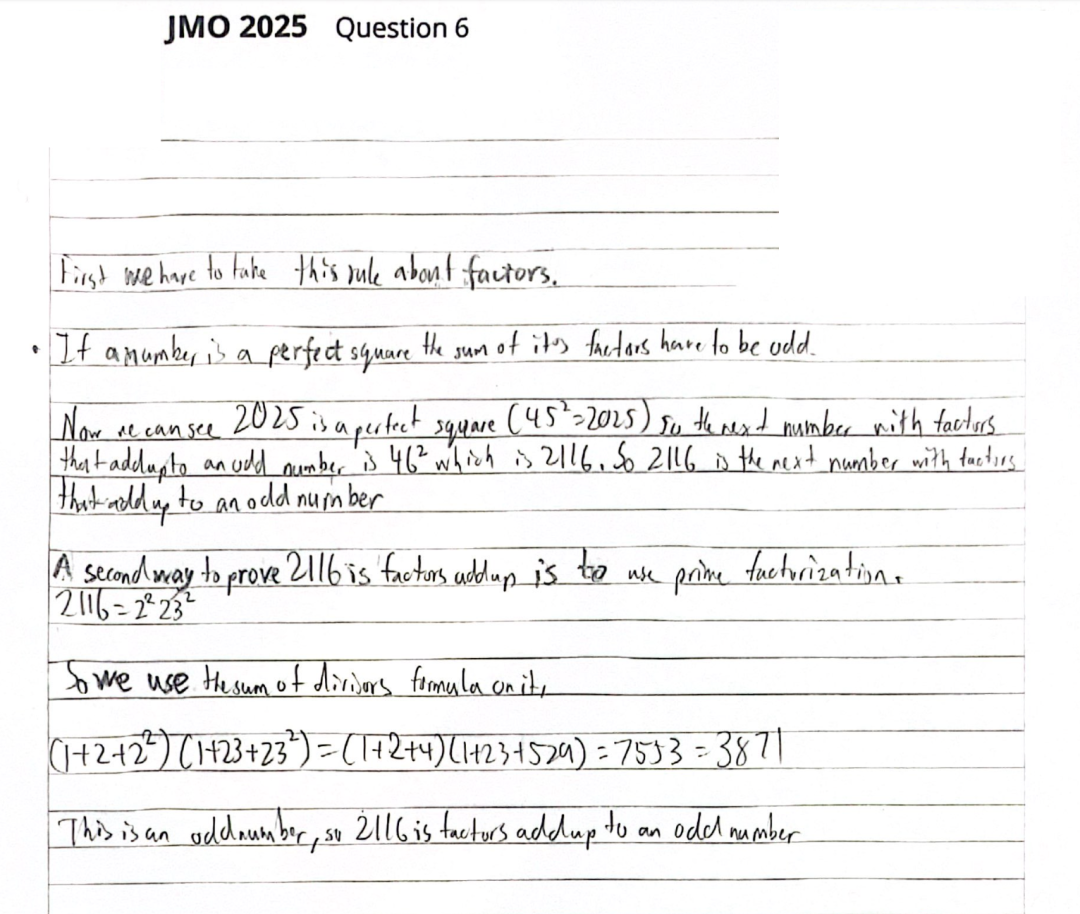 JMO 2025 Question 6
First we have to take this rule about factors.
• If a number is a perfect square the sum of its factors have to be odd.
Now we can see 2025 is a perfect square (45²=2025) so the next number with factors
that add up to an odd number is 46² which is 2116. So 2116 is the next number with factors
that add up to an odd number
A second way to prove 2116 is factors add up is to use prime factorization.
2116 = 2² 23²
So we use the sum of divisors formula on it,
(1+2+2²)(1+23+23²) = (1+2+4)(1+23+529) = 7553 = 3871
This is an odd number, so 2116 is factors add up to an odd number